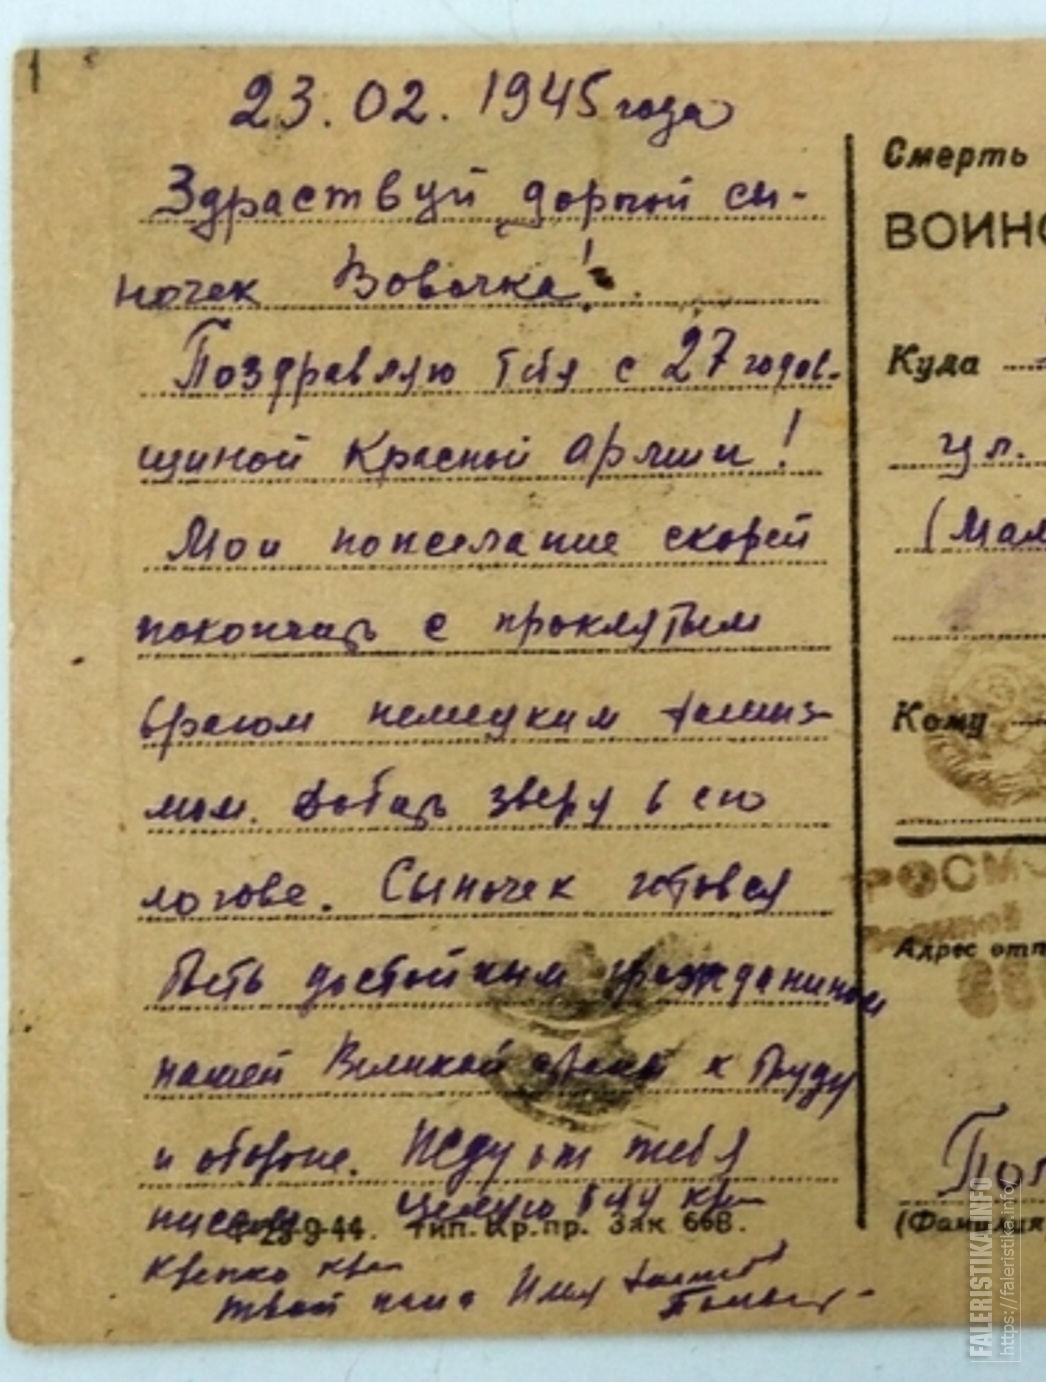 23.02.1945 года
Здраствуй дорогой сы-
ночек Вовочка!
Поздравляю тебя с 27 годов-
щиной Красной армии!
Мои пожелание скорей
покончать с проклятым
врагом немецким фашиз-
мом. Добать зверя в ею
логове. Сыночек готовся
быть достойным гражданином
нашей Великой к труду
и обороне. Жду от тебя
писем целую
23-9-44. Тип. Кр.пр. Зак 668.
Крепко
твой папа
Смерть
ВОИНС
Куда
ул.
(Мал
Кому
РОСМ
Адрес отп
Пол
(Фамилия
FALERISTIKA.INFO
https://faleristika.info/